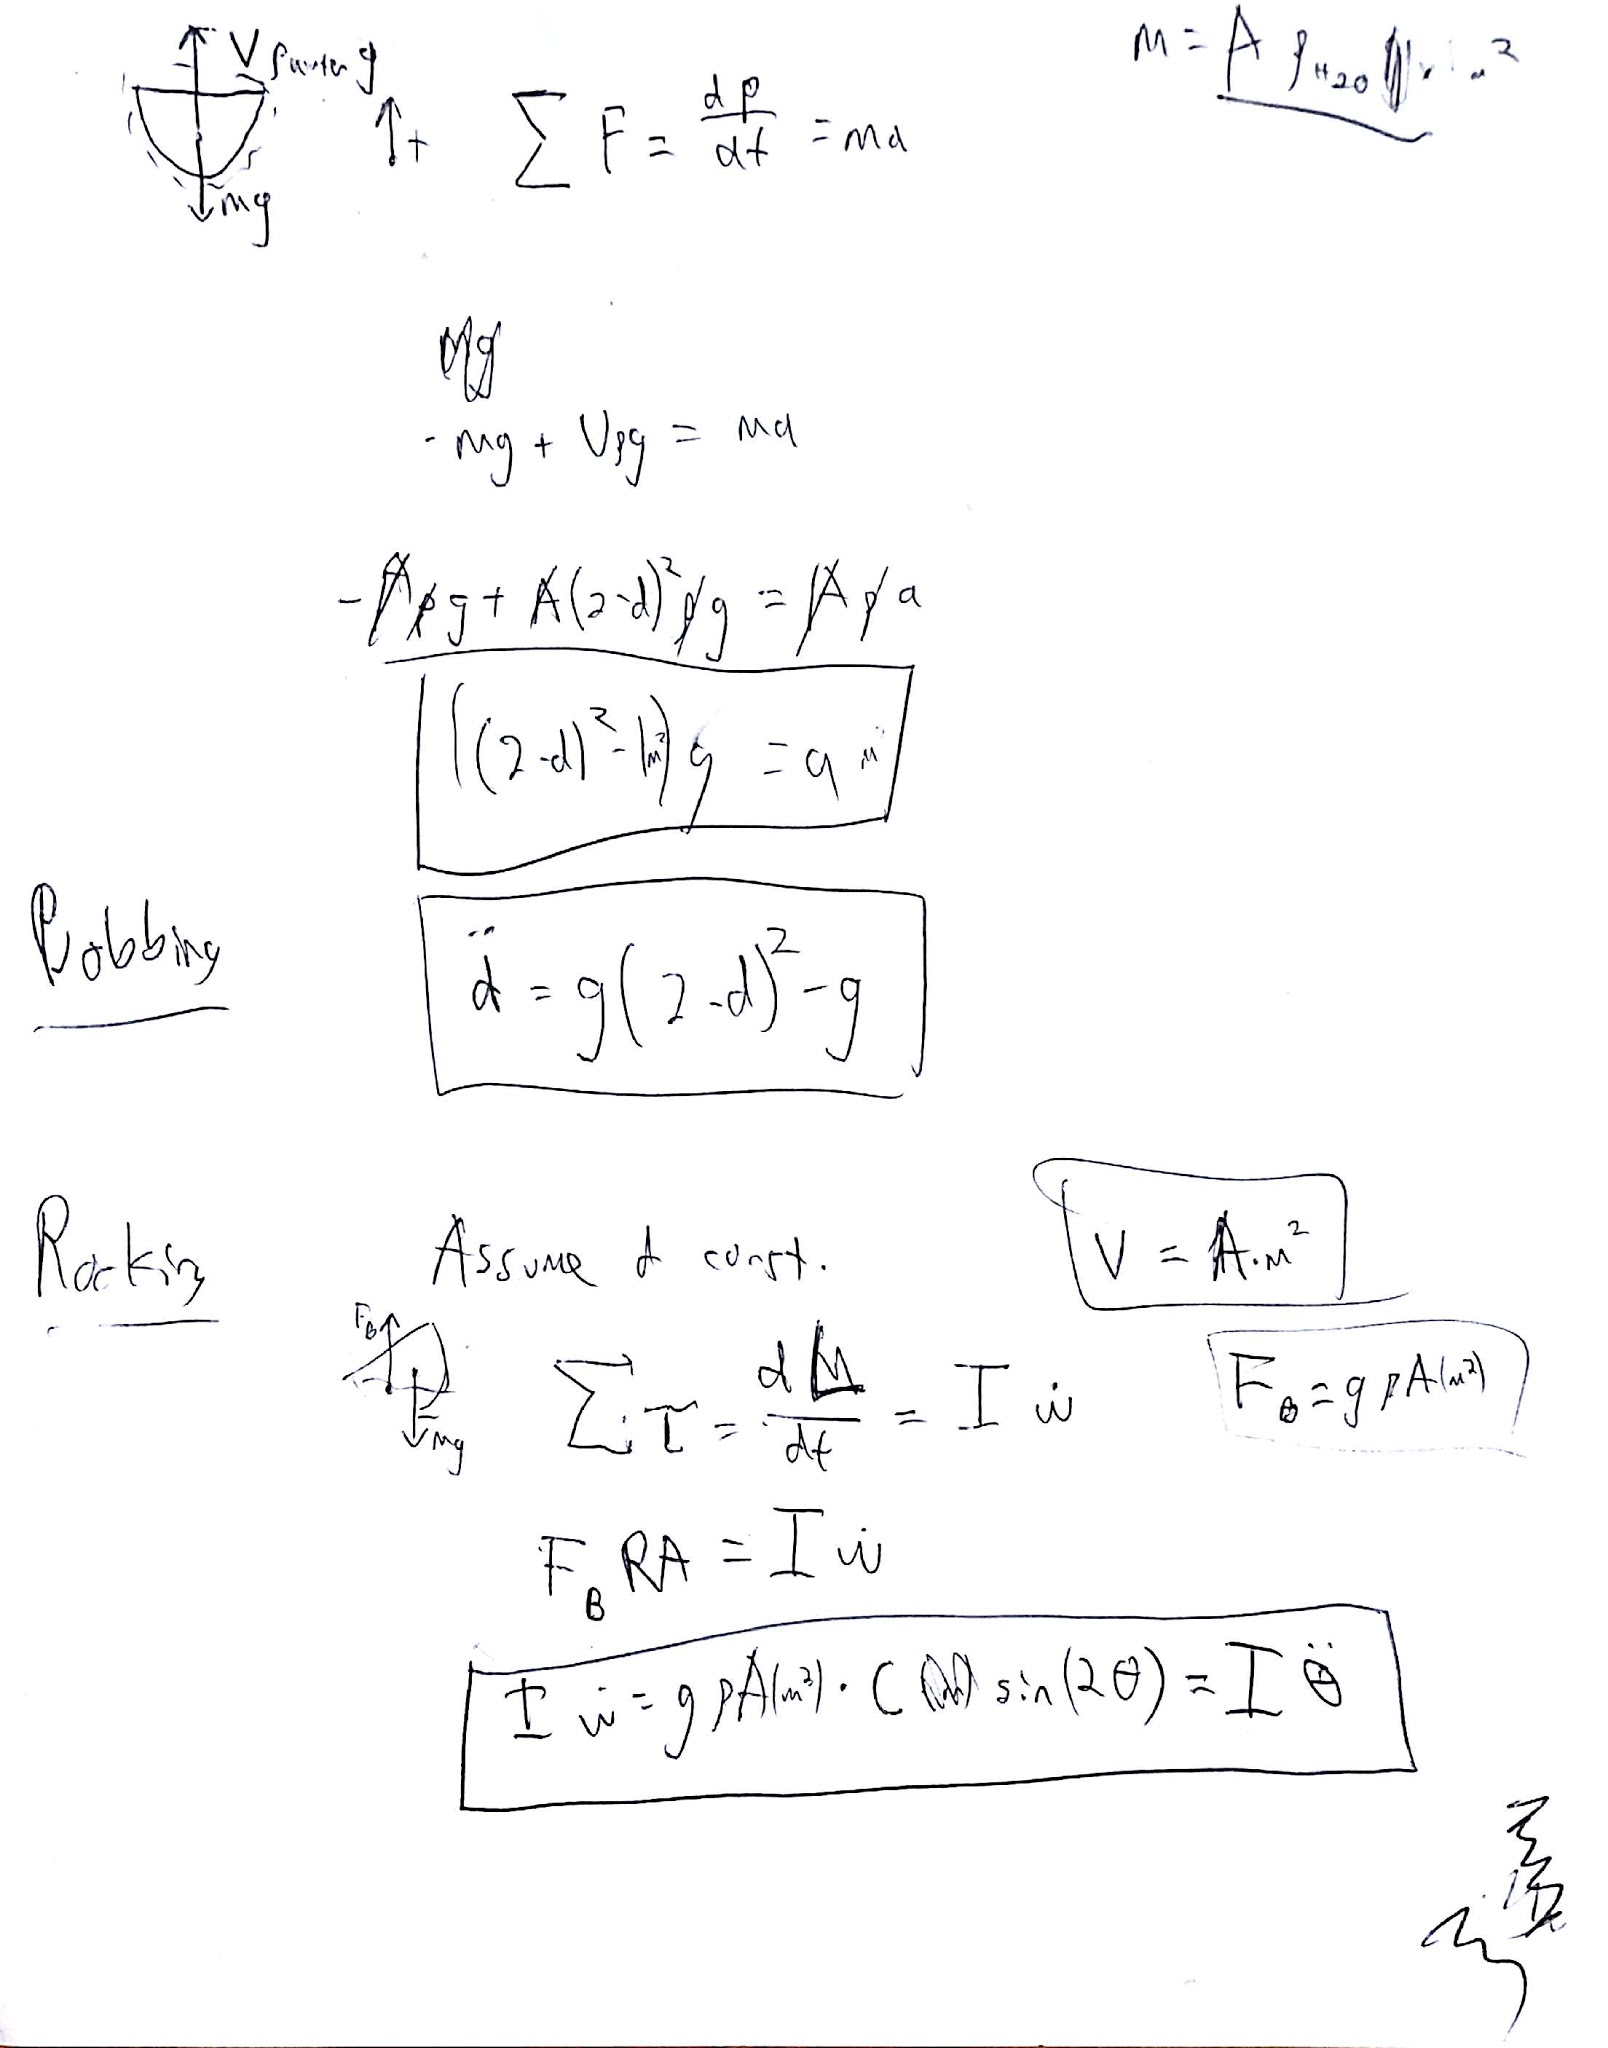 V ρwater g
m = A ρH2O
↑+ ∑ F = dp/dt = ma
mg
Mg
-mg + Vρg = ma
-Aρg + A(2-d)²ρg = Aρa
((2-d)² - 1m²)g = a m²
Bobbing
d̈ = g(2-d)² - g
Rocking Assume d const.
V = A·m²
FB
mg
∑ τ = dL/dt = I ẇ
FB = gρA(m²)
FB RA = I ẇ
I ẇ = gρA(m²)·C sin(2θ) = I θ̈